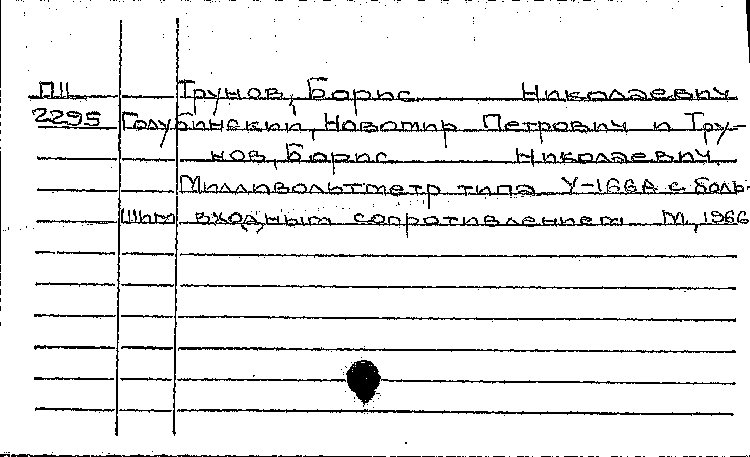 П11 Трунов, Борис Николаевич
2295 Голубинский, Новомир Петрович и Тру-
нов, Борис Николаевич.
Милливольтметр типа У-166А с боль-
шим входным сопротивлением М., 1966